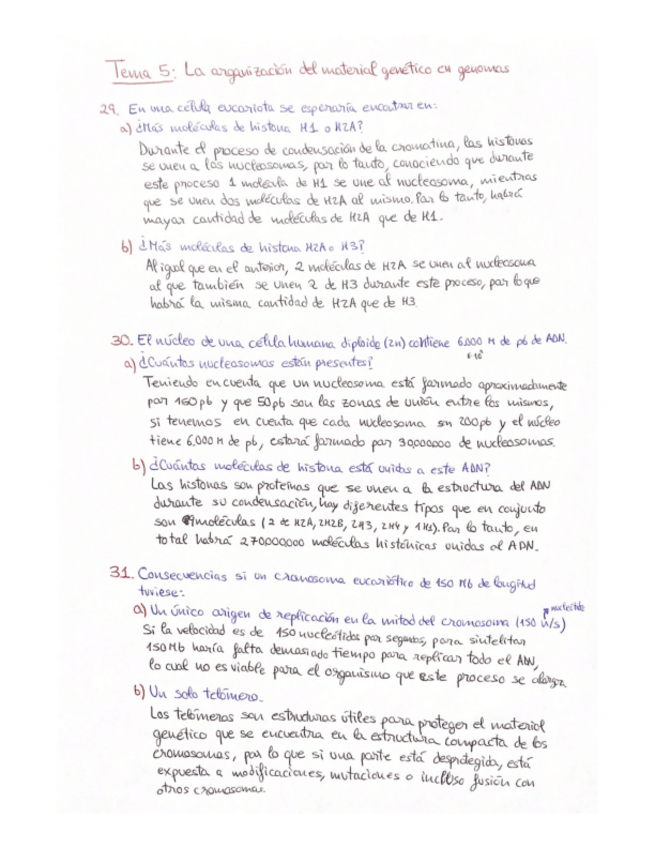 Tema 5: La organización del material genético en genomas
29. En una célula eucariota se esperaría encontrar en:
a) ¿Más moléculas de histona H1 o H2A?
Durante el proceso de condensación de la cromatina, las histonas
se unen a los nucleosomas, por lo tanto, conociendo que durante
este proceso 1 molécula de H1 se une al nucleosoma, mientras
que se unen dos moléculas de H2A al mismo. Por lo tanto, habrá
mayor cantidad de moléculas de H2A que de H1.
b) ¿Más moléculas de histona H2A o H3?
Al igual que en el anterior, 2 moléculas de H2A se unen al nucleosoma
al que también se unen 2 de H3 durante este proceso, por lo que
habrá la misma cantidad de H2A que de H3
30. El núcleo de una célula humana diploide (2n) contiene 6.000 M de pb de ADN.
a) ¿Cuántos nucleosomas están presentes?
Teniendo en cuenta que un nucleosoma está formado aproximadamente
por 150pb y que 50pb son las zonas de unión entre los mismos,
si tenemos en cuenta que cada nucleosoma son 200pb y el núcleo
tiene 6.000 M de pb, estará formado por 30,000000 de nucleosomas.
b) ¿Cuántas moléculas de histona está unidas a este ADN?
Las histonas son proteínas que se unen a la estructura del ADN
durante su condensación, hay diferentes tipos que en conjunto
son 9 moléculas (2 de H2A, 2H2B, 2H3, 2H4 y 1H1). Por lo tanto, en
total habrá 270000000 moléculas histónicas unidas al ADN.
31. Consecuencias si un cromosoma eucariótico de 150 Mb de longitud
tuviese:
nucleótido
a) Un único origen de replicación en la mitad del cromosoma (150 n/s)
Si la velocidad es de 150 nucleótidos por segundo, para sintetitar
150Mb haría falta demasiado tiempo para replicar todo el ADN,
lo cual no es viable para el organismo que este proceso se alarga
b) Un solo telómero.
Los telómeros son estructuras útiles para proteger el material
genético que se encuentra en la estructura compacta de los
cromosomas, por lo que si una parte está desprotegida, está
expuesta a modificaciones, mutaciones o incluso fusión con
otros cromosomas.